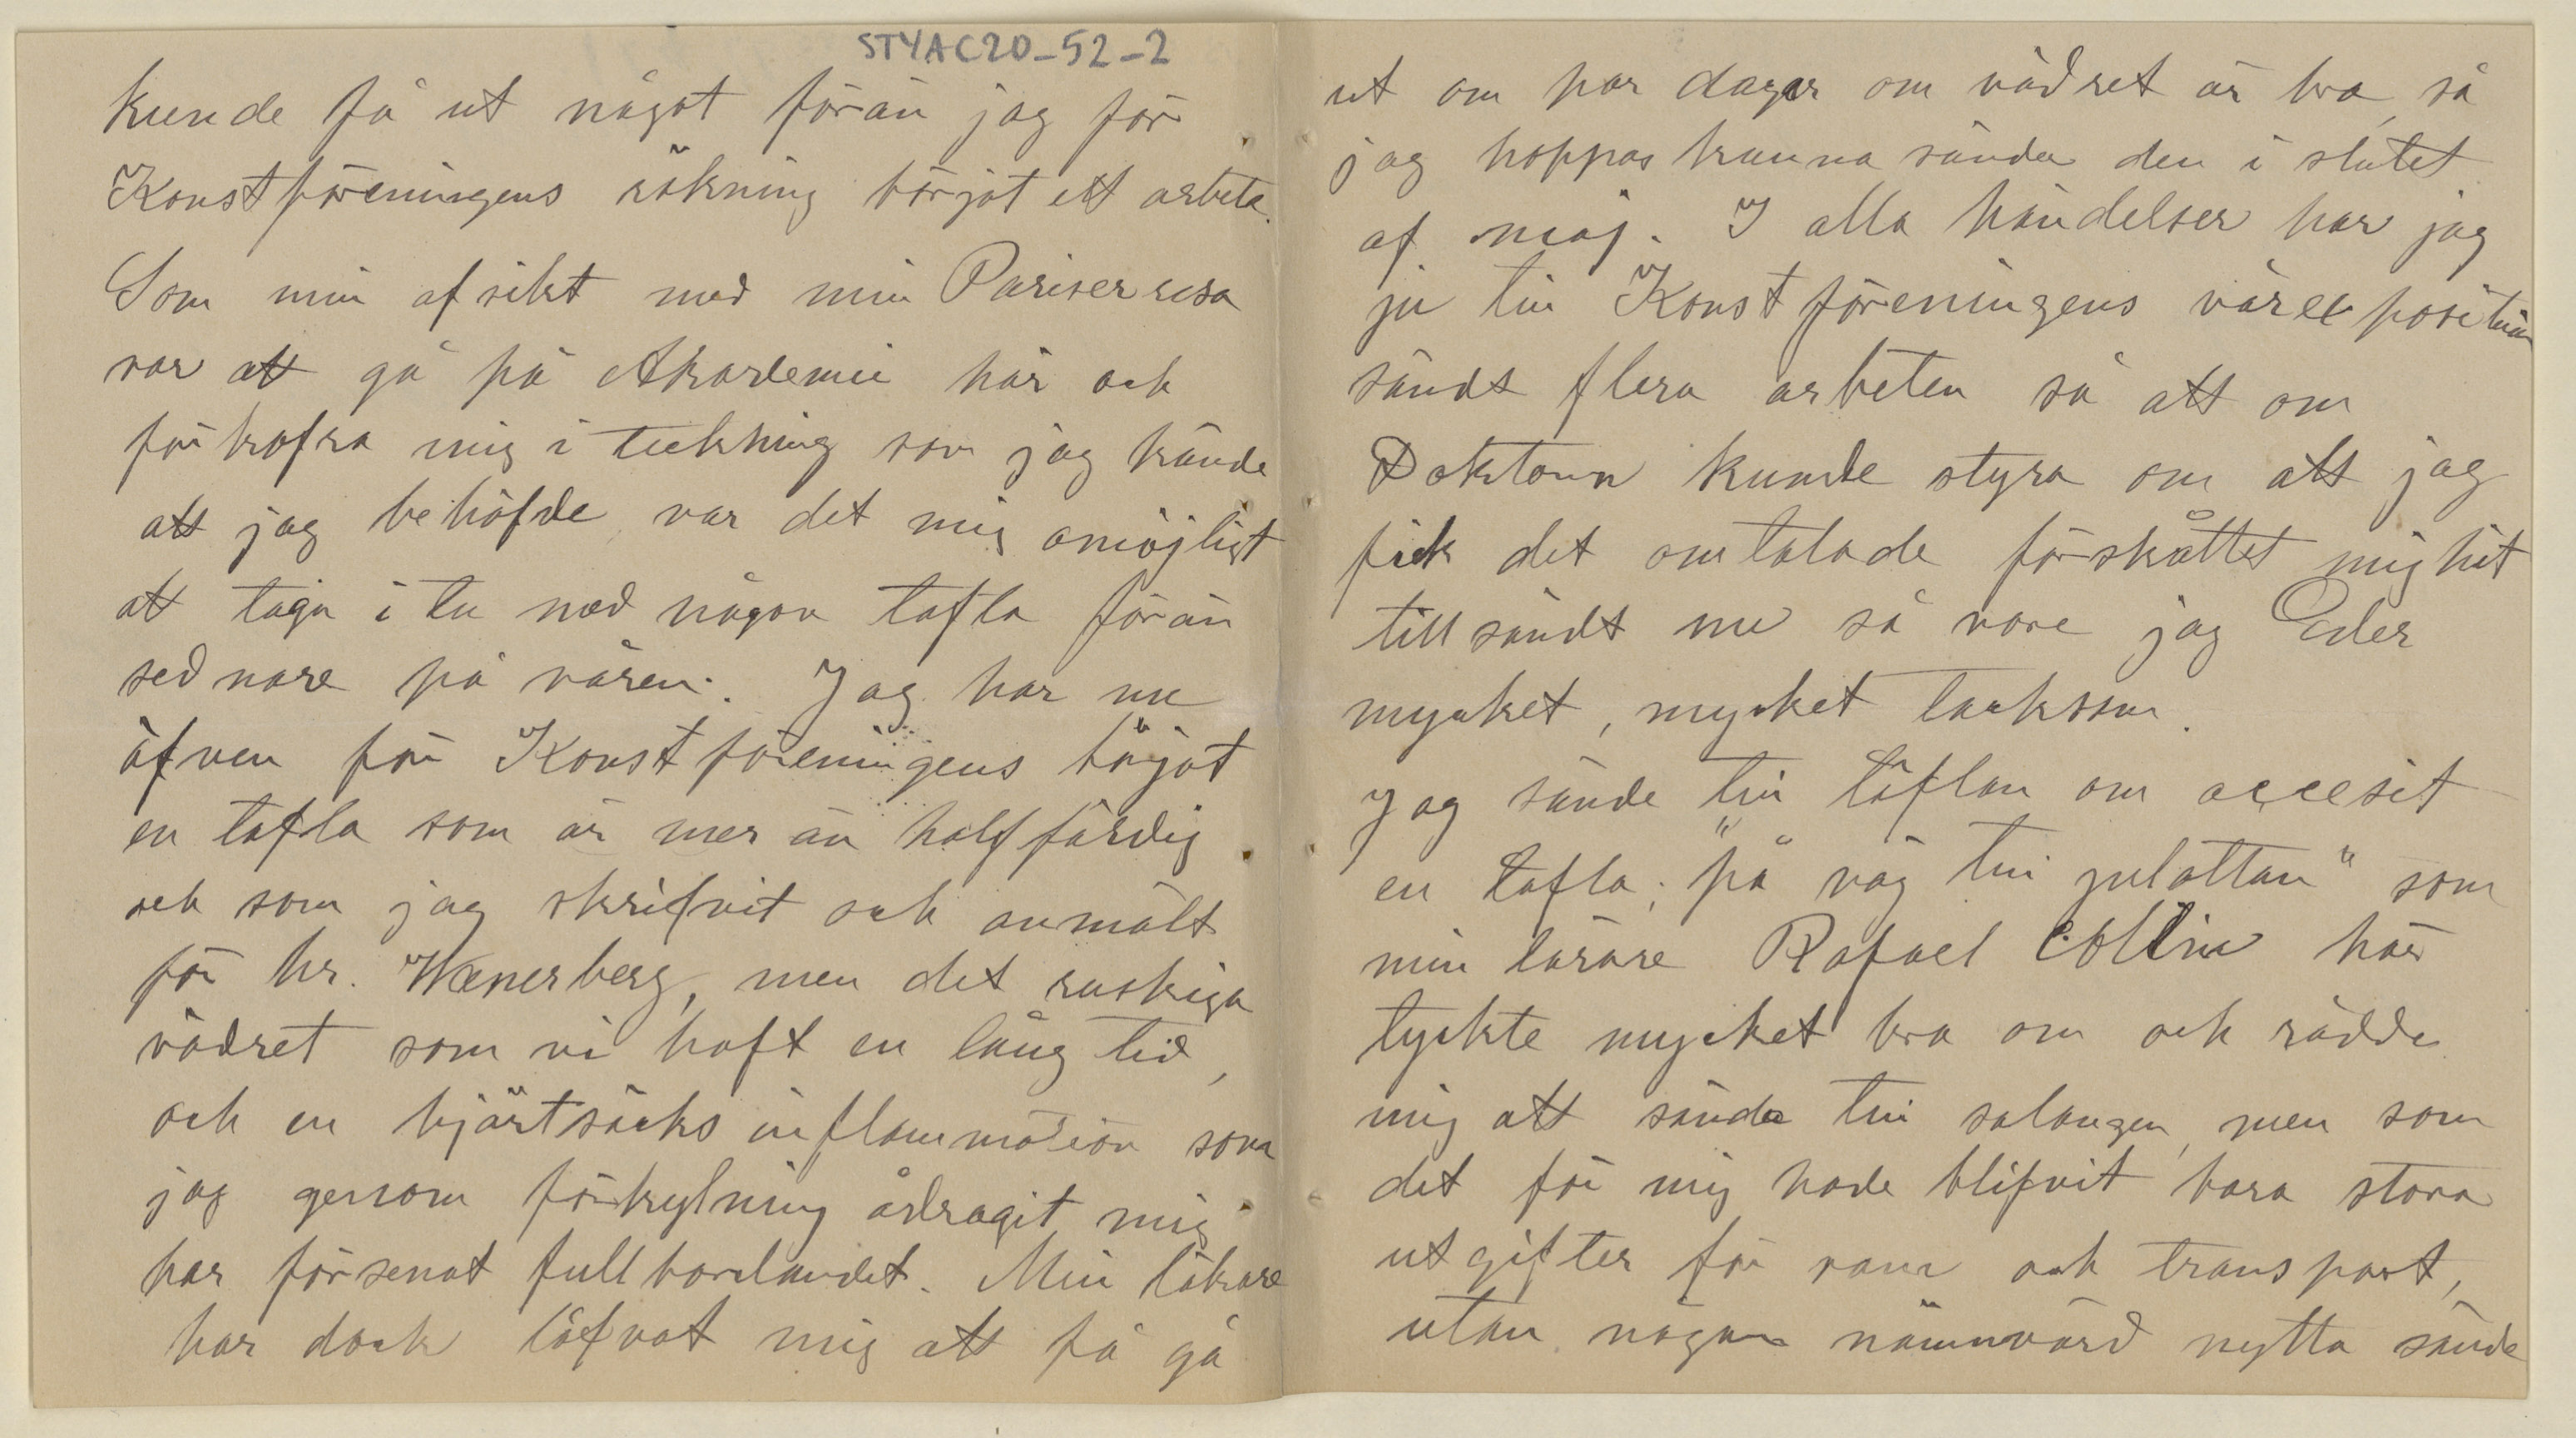 STYAC20_52_2
kunde få ut något förän jag för
Konstföreningens räkning börjat ett arbete.
Som min afsikt med min Pariserresa
var att gå på Akademie här och
förkofra mig i teckning som jag kände
att jag behöfde, var det mig omöjligt
att taga i tu med någon tafla förän
sednare på våren. Jag har nu
äfven för Konstföreningens börjat
en tafla som är mer än halffärdig
och som jag skrifvit och anmält
för hr. Wenerberg, men det ruskiga
vädret som vi haft en lång tid,
och en hjärtsäcks inflammation som
jag genom förkylning ådragit mig
har försenat fullbordandet. Min läkare
har dock låfvat mig att få gå
ut om par dagar om vädret är bra, så
jag hoppas kunna sända den i slutet
af maj. I alla händelser har jag
ju till Konstföreningens vårexposition
sändt flera arbeten så att om
Doktorn kunde styra om att jag
fick det omtalade förskåttet mig hit
tillsändt nu så vore jag Eder
mycket, mycket tacksam.
Jag sände till täflan om accesit
en tafla; "på väg till julottan" som
min lärare Rafael Collin här
tyckte mycket bra om och rådde
mig att sända till salongen, men som
det för mig hade blifvit bara stora
utgifter för ram och transport,
utan någon nämnvärd nytta sände